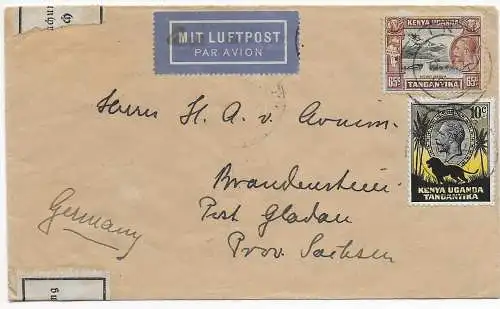 MIT LUFTPOST
PAR AVION
KENYA UGANDA
65c
65c
TANGANYIKA
10c
KENYA UGANDA
TANGANYIKA
Herrn H. A. v. Arnim.
Brandenstein
Post Gladau
Prov. Sachsen
Germany